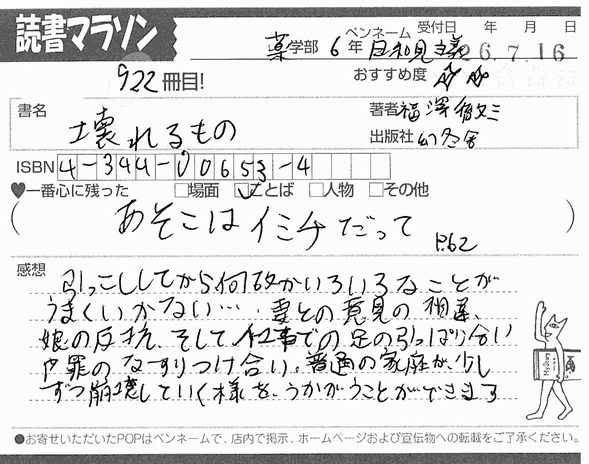 読書マラソン
薬学部 6年 ペンネーム 日和見主義 受付日 年 月 日
26.7.16
922冊目!
おすすめ度
書名
壊れるもの
著者 福澤徹三
出版社 幻冬舎
ISBN 4-344-00653-4
♥一番心に残った □場面 ☑ことば □人物 □その他
(あそこはイミチだって P.62)
感想
引っこししてから何故かいろいろなことが
うまくいかない…。妻との意見の相違、
娘の反抗、そして、仕事での足の引っぱり合い
や罪のなすりつけ合い。普通の家庭が、少し
ずつ崩壊していく様を、うかがうことができます
●お寄せいただいたPOPはペンネームで、店内で掲示、ホームページおよび宣伝物への転載をご了承ください。